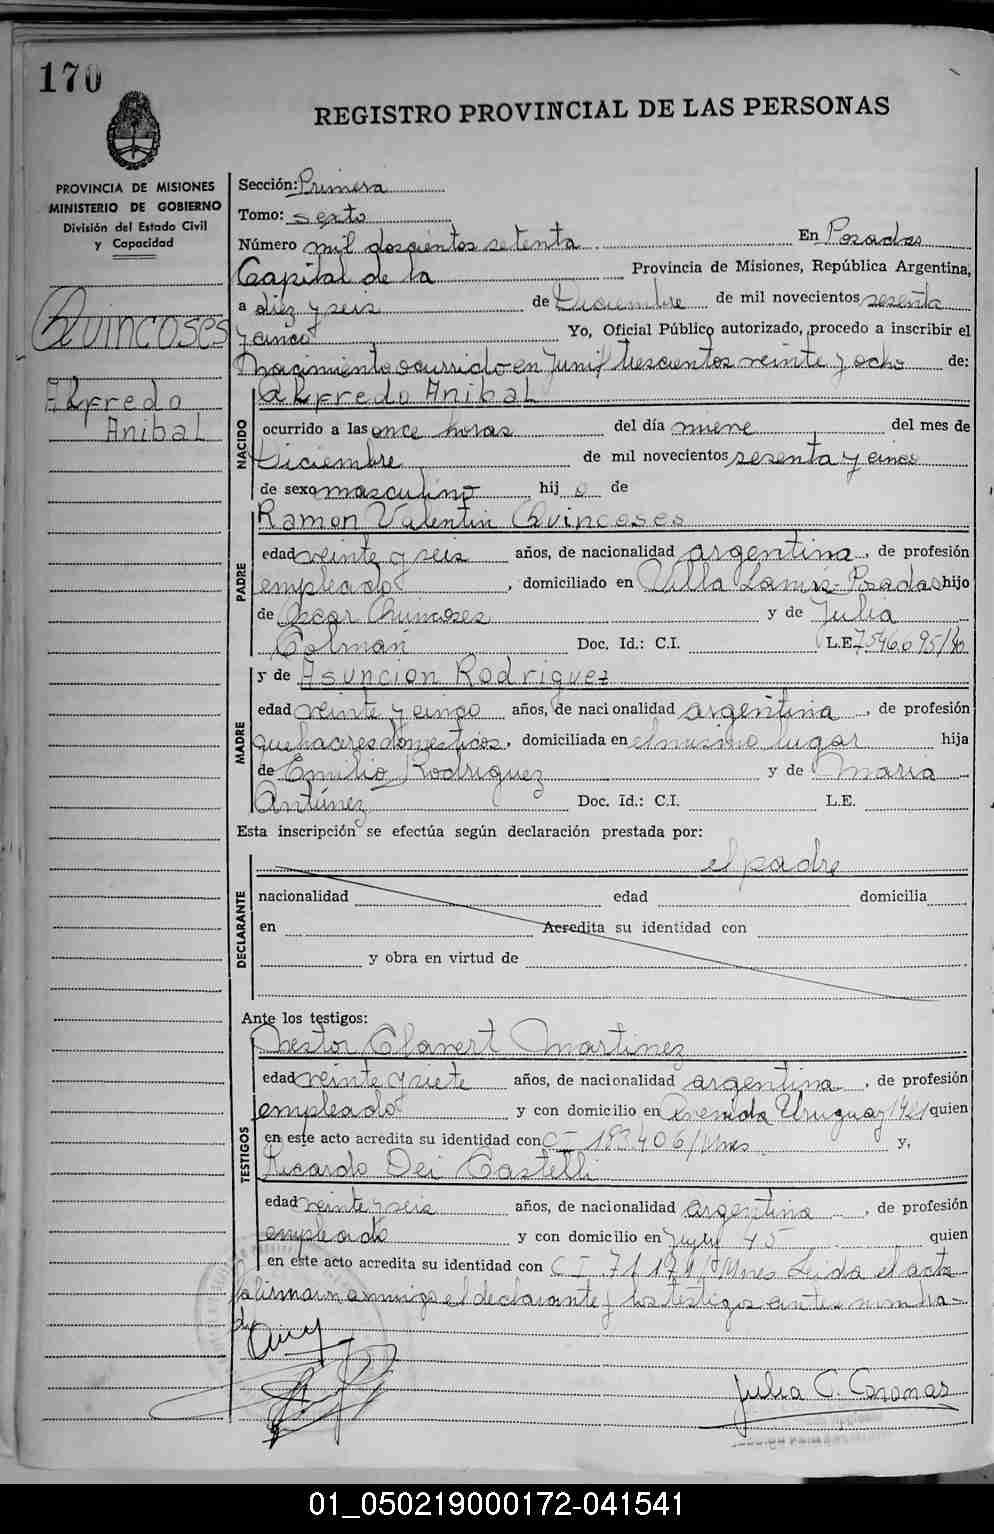 170
REGISTRO PROVINCIAL DE LAS PERSONAS
PROVINCIA DE MISIONES
MINISTERIO DE GOBIERNO
División del Estado Civil
y Capacidad
Quincoses
Alfredo
Anibal
Sección: Primera
Tomo: sexto
Número mil doscientos setenta En Posadas
Capital de la Provincia de Misiones, República Argentina,
a diez y seis de Diciembre de mil novecientos sesenta
y cinco Yo, Oficial Público autorizado, procedo a inscribir el
Nacimiento ocurrido en Junin trescientos veinte y ocho de:
Alfredo Anibal
NACIDO
ocurrido a las once horas del día nueve del mes de
Diciembre de mil novecientos sesenta y cinco
de sexo masculino hij o de
Ramon Valentin Quincoses
PADRE
edad veinte y seis años, de nacionalidad argentina, de profesión
empleado, domiciliado en Villa Posadas hijo
de Oscar Quincoses y de Julia
Colman Doc. Id.: C.I. L.E. 7546095
y de Asuncion Rodriguez
MADRE
edad veinte y cinco años, de nacionalidad argentina, de profesión
quehaceres domesticos, domiciliada en el mismo lugar hija
de Emilio Rodriguez y de Maria
Antúnez Doc. Id.: C.I. L.E.
Esta inscripción se efectúa según declaración prestada por:
el padre
DECLARANTE
nacionalidad edad domicilia
en Acredita su identidad con
y obra en virtud de
Ante los testigos:
Nestor Clavert Martinez
TESTIGOS
edad veinte y siete años, de nacionalidad argentina, de profesión
empleado y con domicilio en Avenida Uruguay 1421 quien
en este acto acredita su identidad con CI 183406/Mnes y,
Ricardo Dei Castelli
edad veinte y seis años, de nacionalidad argentina, de profesión
empleado y con domicilio en Jujuy 45 quien
en este acto acredita su identidad con CI 71171 Mnes Leida el acta
la firmaron conmigo el declarante y los testigos
Julia C. Coronas
01_050219000172-041541